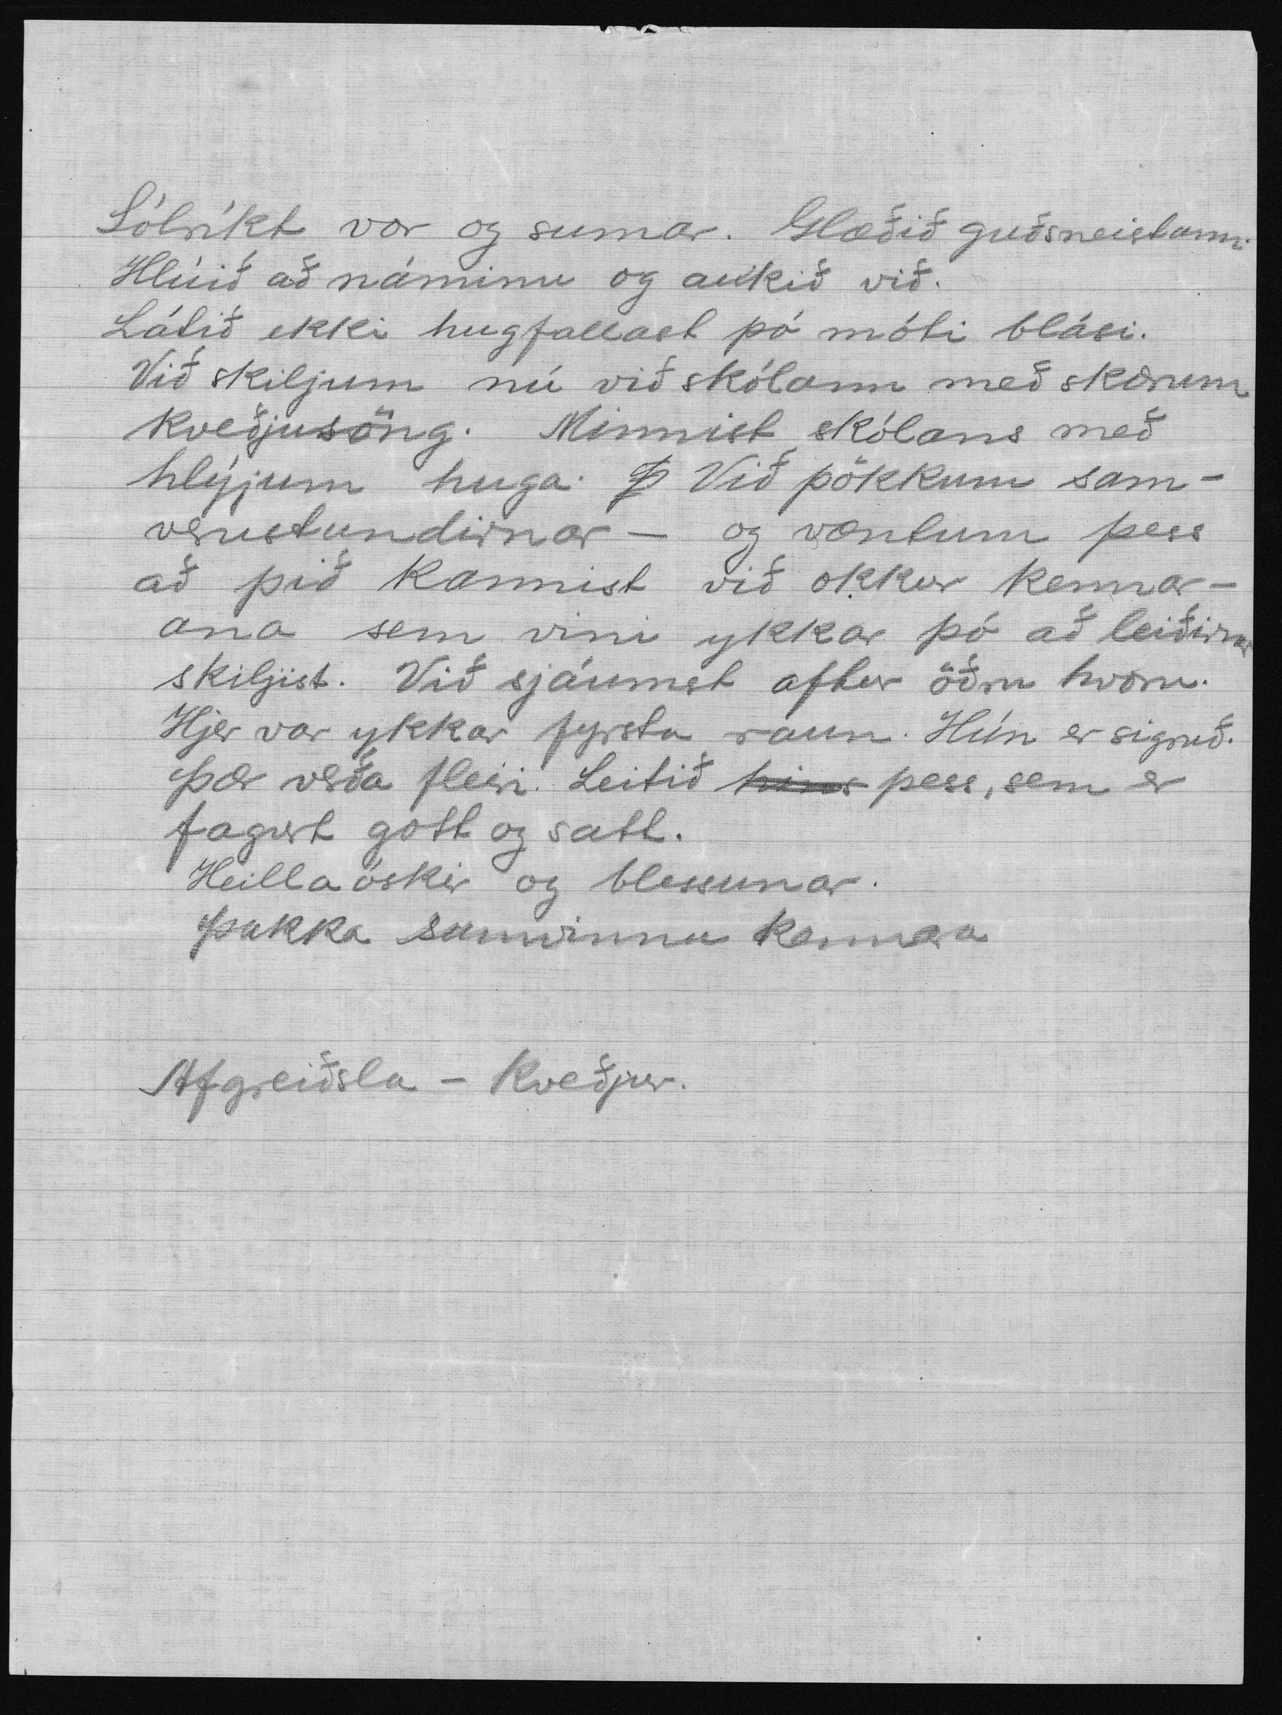 Sólríkt vor og sumar. Glæðið guðsneistann.
Hlúið að náminu og aukið við.
Látið ekki hugfallast þó móti blási.
Við skiljum nú við skólann með skærum
kveðjusöng. Minnist skólans með
hlýjum huga. Þ Við þökkum sam-
verustundirnar - og væntum þess
að þið kannist við okkur kennar-
ana sem vini ykkar þó að leiðirnar
skiljist. Við sjáumst aftur öðru hvoru.
Hjer var ykkar fyrsta raun. Hún er sigruð.
Þær verða fleiri. Leitið hins þess, sem er
fagurt gott og satt.
Heillaóskir og blessunar.
Þakka samvinnu kennara
Afgreiðsla - Kveðjur.